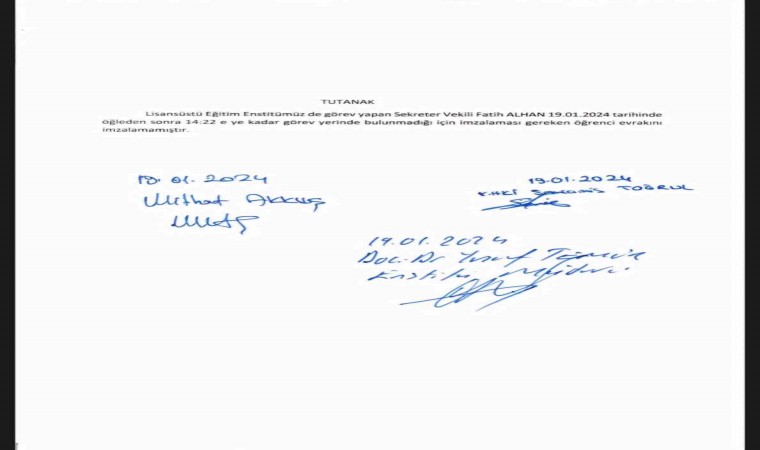 TUTANAK
Lisansüstü Eğitim Enstitümüz de görev yapan Sekreter Vekili Fatih ALHAN 19.01.2024 tarihinde
öğleden sonra 14:22 e ye kadar görev yerinde bulunmadığı için imzalaması gereken öğrenci evrakını
imzalamamıştır.
19.01.2024
Mithat Akkuş
19.01.2024
TOĞRUL
19.01.2024
Doc. Dr Yusuf
Enstitü Müdürü